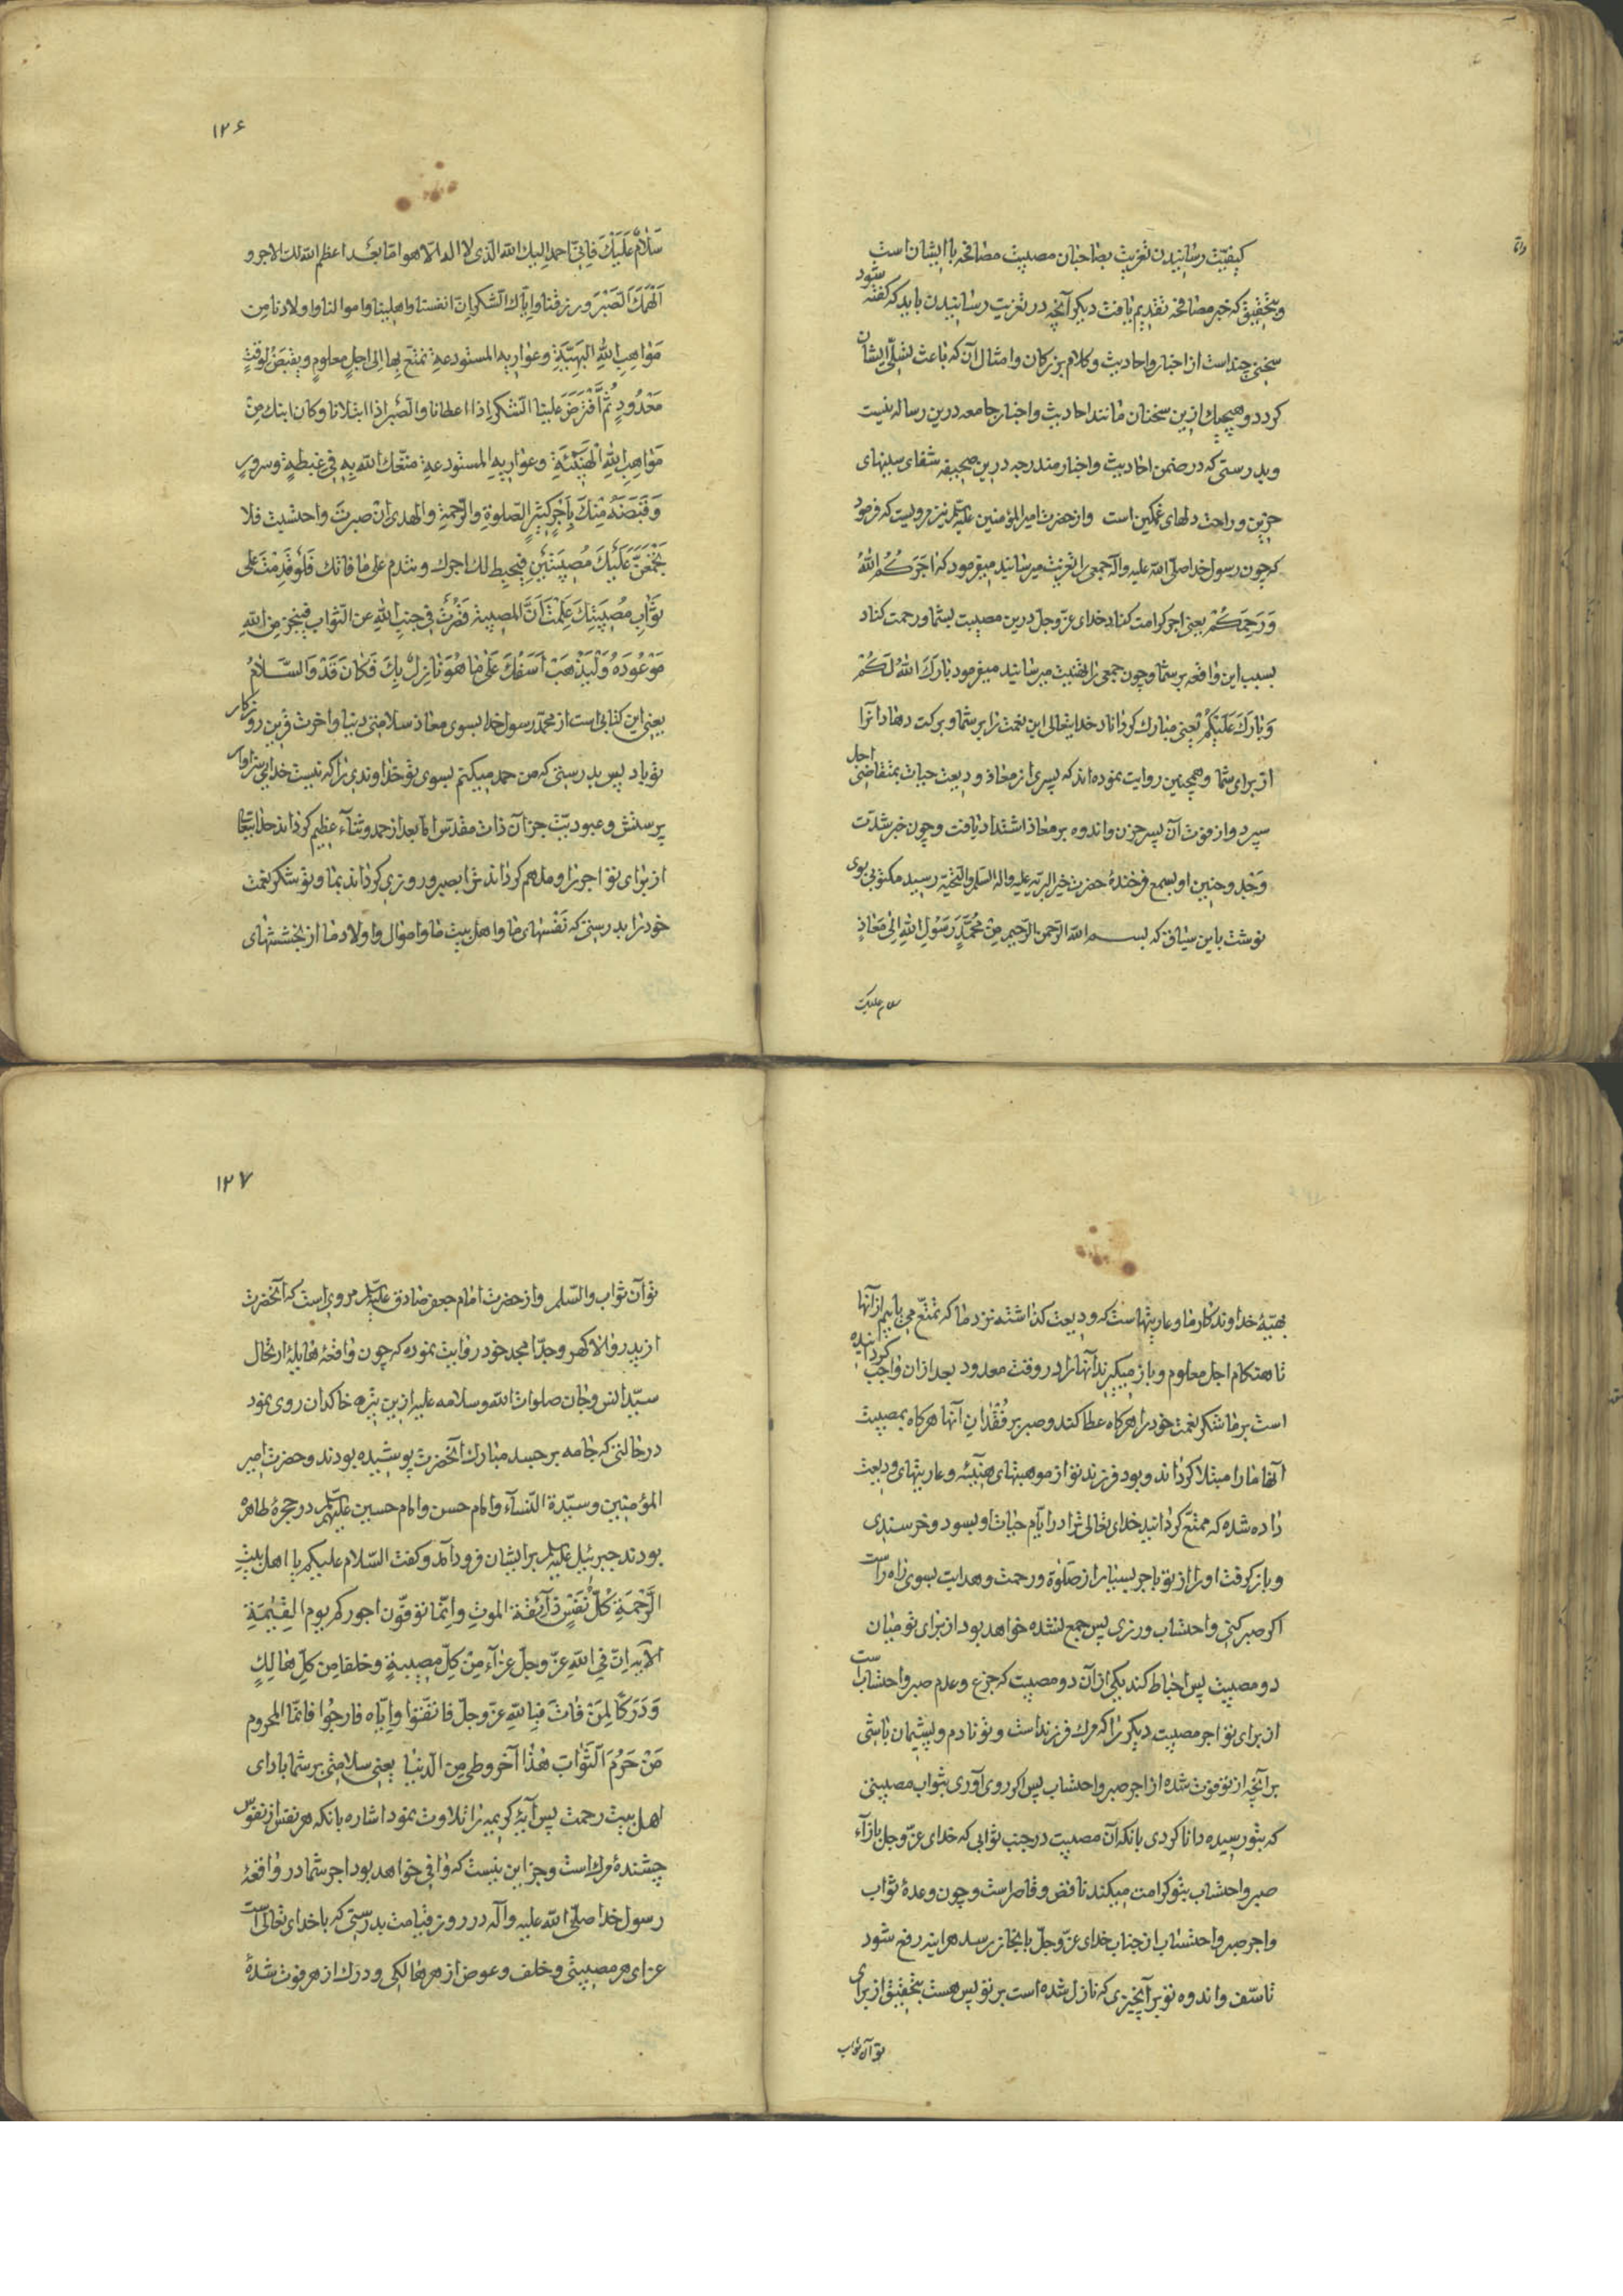 کیفیّت رسانیدن تعزیت بصاحبان مصیبت مصافحه با ایشان است
و بتحقیق که خبر مصافحه تقدیم یافت دیگر آنچه در تعزیت رسانیدن باید که گفته شود
سخنی چند است از اخبار و احادیث و کلام بزرکان و امثال آن که باعث تسلّی ایشان
کردد و هیچیك ازین سخنان مانند احادیث و اخبار جامعه درین رساله نیست
و بدرستی که در ضمن احادیث و اخبار مندرجه درین صحیفه شفای سینهای
حزین و راحت دلهای غمکین است و از حضرت امیرالمؤمنین علیه السّلم نیز مرویست که فرمود
که چون رسول خدا صلّی الله علیه و آله جمعی را تعزیت میرسانید میفرمود که اٰجَرَكُمُ اللهُ
وَ رَحِمَكُمْ یعنی اجر کرامت کناد خدای عزّ وجلّ درین مصیبت بشما و رحمت کناد
بسبب این واقعه بر شما و چون جمعی را تهنیت میرسانید میفرمود بٰارَكَ اللهُ لَكُمْ
وَ بٰارَكَ عَلَیْكُمْ یعنی مبارك کرداناد خدایتعالی این نعمت را بر شما و برکت دهاد آنرا
از برای شما و همچنین روایت نموده اند که پسری از معاذ ودیعت حیات بمتقاضی اجل
سپرد و از فوت آن پسر حزن و اندوه بر معاذ اشتداد یافت و چون خبر شدّت
وَجْد و حنین او بسمع فرخندهٔ حضرت خیر البریّه علیه و اله السّلم و التّحیّة رسید مکتوبی بوی
نوشت باین سیاق که بسم الله الرّحمن الرّحیم مِنْ مُحَمَّدٍ رَسُولِ اللهِ اِلیٰ مَعٰاذٍ
سلام علیك
۱۲۶
سَلٰامٌ عَلَیْكَ فَاِنّی احمد الیك الله الّذی لا اله الّا هو امّا بعد اعظم الله لك الاجر و
اَلْهَمَكَ الصَّبْرَ و رزقنا و ایّاك الشّکر اِنّ انفسنا و اهلینا و اموالنا و اولادنا مِن
مَوٰاهِبِ اللهِ الهَنِیَّةِ و عواریه المستودعة نمتّع بها الی اجلٍ معلومٍ و یقبض لوقتٍ
مَعْدُودٍ ثُمَّ افْتَرَضَ علینا الشّکر اِذا اعطانا و الصّبر اذا ابتلانا و کان ابنك مِن
مَوٰاهِبِ اللهِ الْهَنیئَةِ و عواریه المستودعة متّعك الله به فی غبطةٍ و سرورٍ
وَ قَبَضَهُ مِنْكَ بِاَجْرٍ کثیرٍ الصّلوةِ و الرّحمةِ و الهدی ان صبرتَ و احتسبت فلا
یَجْتَمِعَنَّ عَلَیْكَ مُصِیبَتَیْنِ فیحیط لك اجرك و تندم علی ما فاتك فَلَوْ قَدِمْتَ علی
ثَوٰابِ مُصِیبَتِكَ عَلِمْتَ اَنَّ المصیبة قَصُرَتْ فی جنبِ اللهِ عن الثّواب فینجز مِنَ اللهِ
مَوْعُودَهُ وَ لْیَذْهَبْ اَسَفُكَ عَلیٰ مٰا هُوَ نٰازِلٌ بِكَ فَكٰانَ قَدْ وَ السَّلٰامُ
یعنی این کتابی است از محمّد رسول خدا بسوی معاذ سلامتی دنیا و اخرت قرین روزکار
تو باد پس بدرستی که من حمد میکنم بسوی تو خداوندی را که نیست خدایی سزاوار
پرستش و عبودیّت جز آن ذات مقدّس امّا بعد از حمد و ثنآء عظیم کرداند خدایتعالی
از برای تو اجر را و ملهم کرداند ترا بصبر و روزی کرداند بما و بتو شکر نعمت
خود را بدرستی که نَفْسهای ما و اهل بیت ما و اموال و اولاد ما از بخششهای
بهیّهٔ خداوند کار ما و عاریتهاست که ودیعت کذاشته نزد ما که تمتّع می یابیم از آنها
تا هنکام اجل معلوم و باز میکیرند آنها را در وقت معدود بعد ازان واجب کردانیده
است بر ما شکر نعمت خود را هرکاه عطا کند و صبر بر فُقْدٰانِ آنها هرکاه بمصیبت
آنها ما را مبتلا کرداند و بود فرزند تو از موهبتهای هنیئه و عاریتهای ودیعت
داده شده که ممتّع کردانید خدای تعالی ترا در ایّام حیات او بسود و خرسندی
و باز کرفت او را از تو باجر بسیار از صَلٰوة و رحمت و هدایت بسوی راه راست
اکر صبر کنی و احتساب ورزی پس جمع نشده خواهد بود از برای تو میان
دو مصیبت پس احباط کند یکی از آن دو مصیبت که جزع و عدم صبر و احتساب است
از برای تو اجر مصیبت دیکر را که مرك فرزند است و تو نادم و پشیمان باشی
بر آنچه از تو فوت شده از اجر صبر و احتساب پس اکر روی آوری بثواب مصیبتی
که بتو رسیده دانا کردی بانکه آن مصیبت در جنب ثوابی که خدای عزّ وجلّ بازآء
صبر و احتساب بتو کرامت میکند ناقص و قاصر است و چون وعدهٔ ثواب
و اجر صبر و احتساب از جناب خدای عزّ وجلّ بانجاز رسد هراینه رفع شود
تاسّف و اندوه تو بر آنچیزی که نازل شده است بر تو پس هست بتحقیق از برای
تو آن ثواب
۱۲۷
تو آن ثواب و السّلم و از حضرت امام جعفر صادق علیه السّلم مرویست که آنحضرت
از پدر والا کهر و جدّ امجد خود روایت نموده که چون واقعهٔ هایلهٔ ارتحال
سیّد انس و جان صلوات الله و سلامه علیه ازین تیره خاکدان روی نمود
در حالتی که جامه بر جسد مبارك آنحضرت پوشیده بودند و حضرت امیر
المؤمنین و سیّدة النّسآء و امام حسن و امام حسین علیهم السّلم در حجرهٔ طاهره
بودند جبرئیل علیه السّلم بر ایشان فرود آمد و کفت السّلام علیکم یا اهل بیتِ
الرَّحْمَةِ كُلُّ نَفْسٍ ذآئِقَة الموتِ و اِنّما توفّون اجورکم یوم القِیٰمَةِ
الآیه اِنّ فی اللهِ عزّ وجلّ عزآء مِنْ کلِّ مصیبةٍ و خلفا مِن کلِّ هالِكٍ
وَ دَرَکًا لِمَنْ فٰاتَ فبِاللهِ عزّ وجلّ فاتّقوا و اِیّاه فارجُوا فانّما المحروم
مَنْ حَرُمَ الثَّوٰابَ هٰذٰا آخر وطی مِن الدّنیا یعنی سلامتی بر شما باد ای
اهل بیت رحمت پس آیهٔ کریمه را تلاوت نمود اشاره بانکه هر نفس از نفوس
چشندهٔ مرك است و جز این نیست که وافی خواهد بود اجر شما در واقعهٔ
رسول خدا صلّی الله علیه و آله در روز قیامت بدرستی که با خدای تعالی است
عزای هر مصیبتی و خلف و عوض از هر هالکی و درك از هر فوت شدهٔ